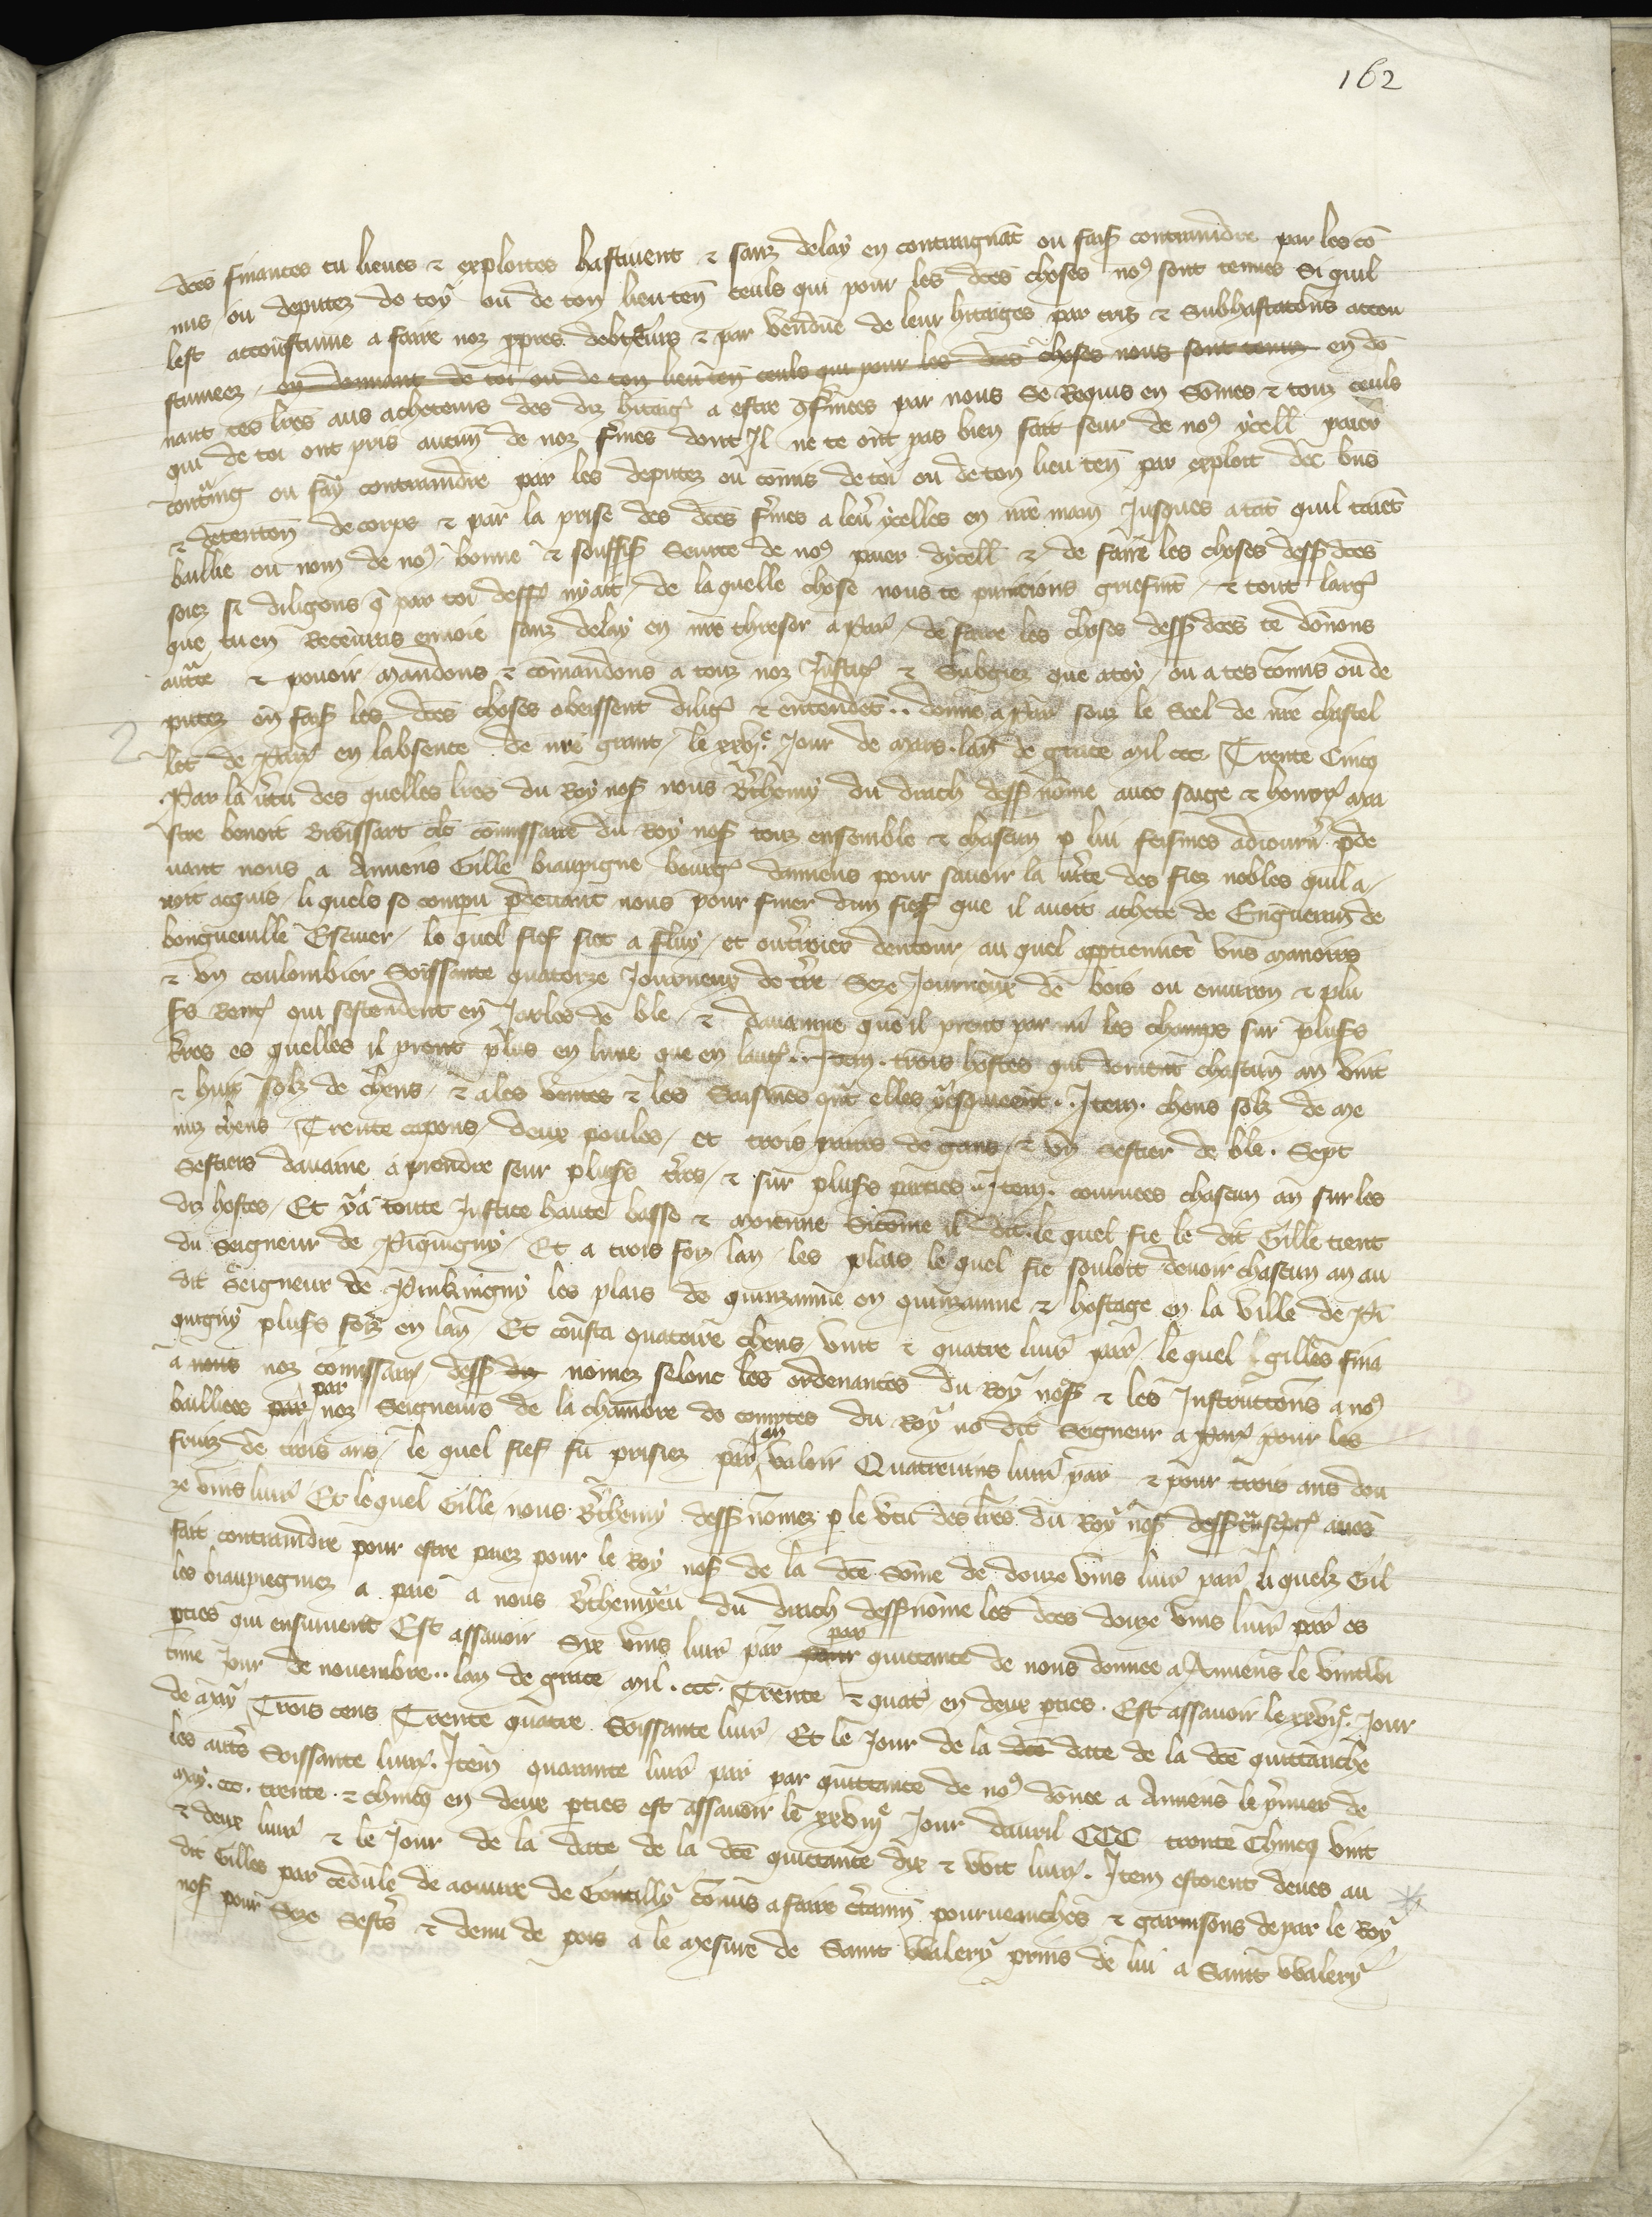 162
dces finances tu lieues et exploites hastiuent et sanz delay en contraignat ou fais contraindre par les co
mis ou deputez de toy ou de ton lieu ten ceuls qui pour les dces choses nos sont tenus Si quil
lest accoustume a faire noz ppres debteurs et par vendue de leur hitaiges par cris et Subhastacons accou
stumeez en donnant de toi ou de ton lieu ten ceuls qui pour les dces choses nous sont tenuz en do
nant tes lres aus acheteurs des diz hitaig a estre gfermees par nous Se Requis en Sommes et touz ceuls
qui de toi ont pris aucun de noz fmes dont Il ne te ont pas bien fait seur de nos ycell paier
contraing ou fay contraindre par les deputez ou comis de toi ou de ton lieu ten par exploit de bns
et detention de corps et par la prise des dces fmes a leur ycelles en nre main Jusques a tat quil taiet
baillie ou nom de nos bonne et souffis Seurte de nos paier dycell et de faire les choses dess dces
soiez si diligens q par toi deff nyait de laquelle chose nous te punicions griefmt et tout larg
que tu en Receuras enuoie sanz delay en nre thresor a Par de faire les choses dess dces te donons
auctte et pouoir mandons et comandons a touz noz Justic et Subgiez que a toy ou a tes comis ou de
putez en fais les dces choses obeissent dilig et entendet .. donne a Par souz le Scel de nre chastel
let de Par en labsence de nre grant le xxvje Jour de Mars lan de grace mil ccc Trente Cincq
Par la vtu des quelles lres du Roy nos nous Bthemy du drach dess nome auec saige et honor mai
stre benoit Broissart clc comissaire du Roy nos touz ensemble et chascun p lui feismes adiourn pde
uant nous a Amiens Gille biaupigne bourg damiens pour sauoir la vrte des fiez nobles quil a
uoit acquis li quels se compu pdeuant nous pour finer dun fief que il auoit achete de Engueran de
bongueuille Escuier le quel fief siet a fluy et ou trrior dentour au quel apptiennet vns manoirs
et vn coulombier Soissante quatorze Journeux de tre Seze Journeux de bois ou enuiron et plu
srs Rent qui sestendent en Jarbes de ble et dauainne que il prent par mi les champs sur plusrs
tres es quelles il prent plus en lune que en laut .. Item trois hostes qui doiuent chascun an vint
et huit solz de chens et a les ventes et les Saisines qnt elles y eschieent .. Item chens solz de me
nuz chens Trente capons deux poules et trois paires de gans et vn Sestier de ble Sept
Sestiers dauaine a prendre seur plusrs tres et sur plusrs parties .. Item couruees chascun an sur les
diz hostes Et y a toute Justice haute basse et moienne Sicomme il dit le quel fie le dit Gille tient
du Seigneur de Piquigny Et a trois foiz lan les plais le quel fie souloit deuoir chascun an au
dit Seigneur de Pinkingny les plais de quinzainne en quinzainne et hostage en la ville de Pi
quigny plusrs foiz en lan Et cousta quatorze chens vint et quatre liur par le quel gilles fina
a nous noz comissair dess diz nomez selonc les ordenances du Roy nos et les Instructions a nos
baillees par par noz Seigneurs de la chambre de comptes du Roy no dit Seigneur a Par pour les
fruiz de trois ans le quel fief fu prisiez par an valoir Quatreuins liur par et pour trois ans dou
ze vins liur Et lequel Gille nous Bthemy dess nomez p le vtu des lres du Roy nos dess transcpt auos
fait contraindre pour estre paiez pour le Roy nos de la dce Some de douze vins liur par li quelz Gil
les biaupiegniez a paie a nous Bthemyeu du drach dess nome les dces douze vins liur par es
pties qui ensuiuent Est assauoir Six vins liur par pour par quittance de nous donnee a Amiens le vintwi
time Jour de nouembre .. lan de grace mil ccc Trente et quat en deux pties Est assauoir le xxviije Jour
de May Trois cens Trente quatre Soissante liur Et le Jour de la dce date de la dce quittanche
les autrs Soissante liur Item quarante liur par par quittance de nos donee a Amiens le pmier de
may ccc trente et chincq en deux pties est assauoir le xxviije Jour dauril CCC trente Chincq vint
et deux liur et le Jour de la date de la dce quittance dix et wit liur Item estoient deues au
dit Gilles par cedule de aoustie de Contilly comis a faire ctainn pourueanches et garnisons de par le Roy
nos pour Seze Sestrs et demi de pois a le mesure de Saint Walery prins de lui a Saint Walery